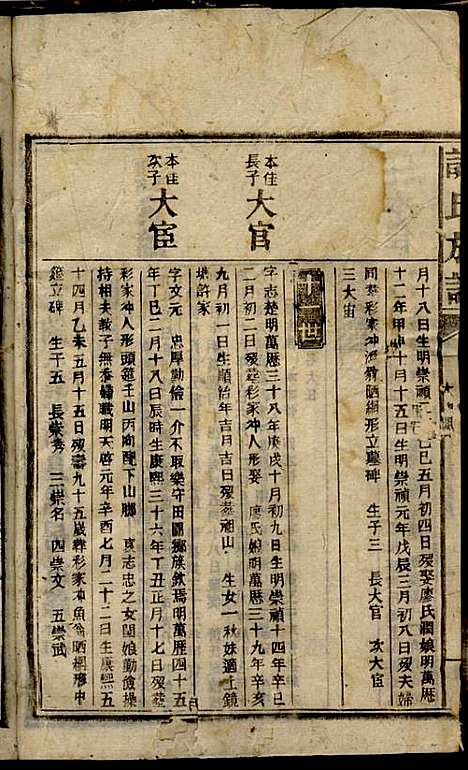 氏族譜
月十八日生明崇禎二年己巳五月初四日歿娶廖氏潤娘明萬歷
十二年甲申十月十五日生明崇禎元年戊辰三月初八日歿夫婦
同葬彩家冲海翁晒網形立墓碑 生子三 長大官 次大宦
三大宙
世
本佳長子大官
字志楚明萬歷三十八年庚戌十月初九日生明崇禎十四年辛巳
二月初二日歿葬彩家冲人形娶廖氏娘明萬歷三十九年辛亥
九月初一日生順治年吉月吉日歿葬湘山 生女一秋妹適上鏡
塘許家
本佳次子大宦
字文元 忠厚勤儉一介不取樂守田園鄉族欽焉明萬歷四十五
年丁巳二月十八日辰時生康熙三十六年丁丑正月十七日歿葬
彩家冲人形頭筵壬山丙向配下山廖 真志忠之女閏娘勤儉操
持相夫教子無忝婦職明天啓元年辛酉七月二十二日生康熙五
十四月乙未五月十五日歿壽九十五歲葬彩家冲魚翁晒網形中
筵立碑 生子五 長崇秀 三崇名 四崇文 五崇武